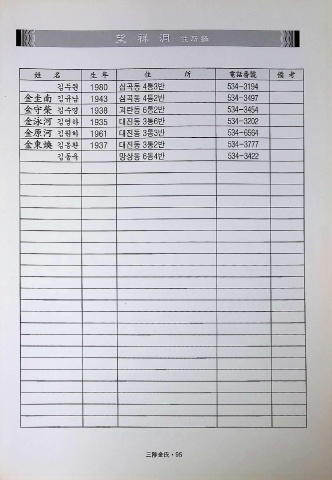 望祥洞 住所錄
姓 名 生年 住 所 電話番號 備考
김두원 1980 심곡동 4통3반 534-3194
金圭南 김규남 1943 심곡동 4통2반 534-3497
金守榮 김수영 1938 괴란동 6통2반 534-3454
金泳河 김영하 1935 대진동 3통6반 534-3202
金原河 김원하 1961 대진동 3통3반 534-6564
金東煥 김동환 1937 대진동 3통2반 534-3777
김동욱 망상동 6통4반 534-3422
三陟金氏·95